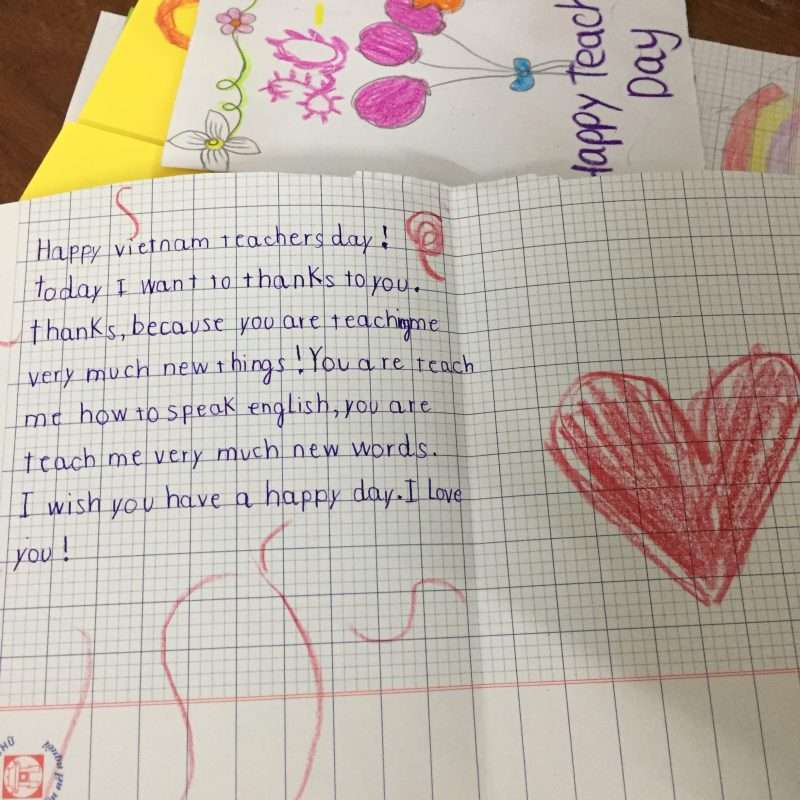 Happy Teach
Day
Happy vietnam teachers day!
today I want to thanks to you.
thanks, because you are teaching me
very much new things! You are teach
me how to speak english, you are
teach me very much new words.
I wish you have a happy day. I Love
you!